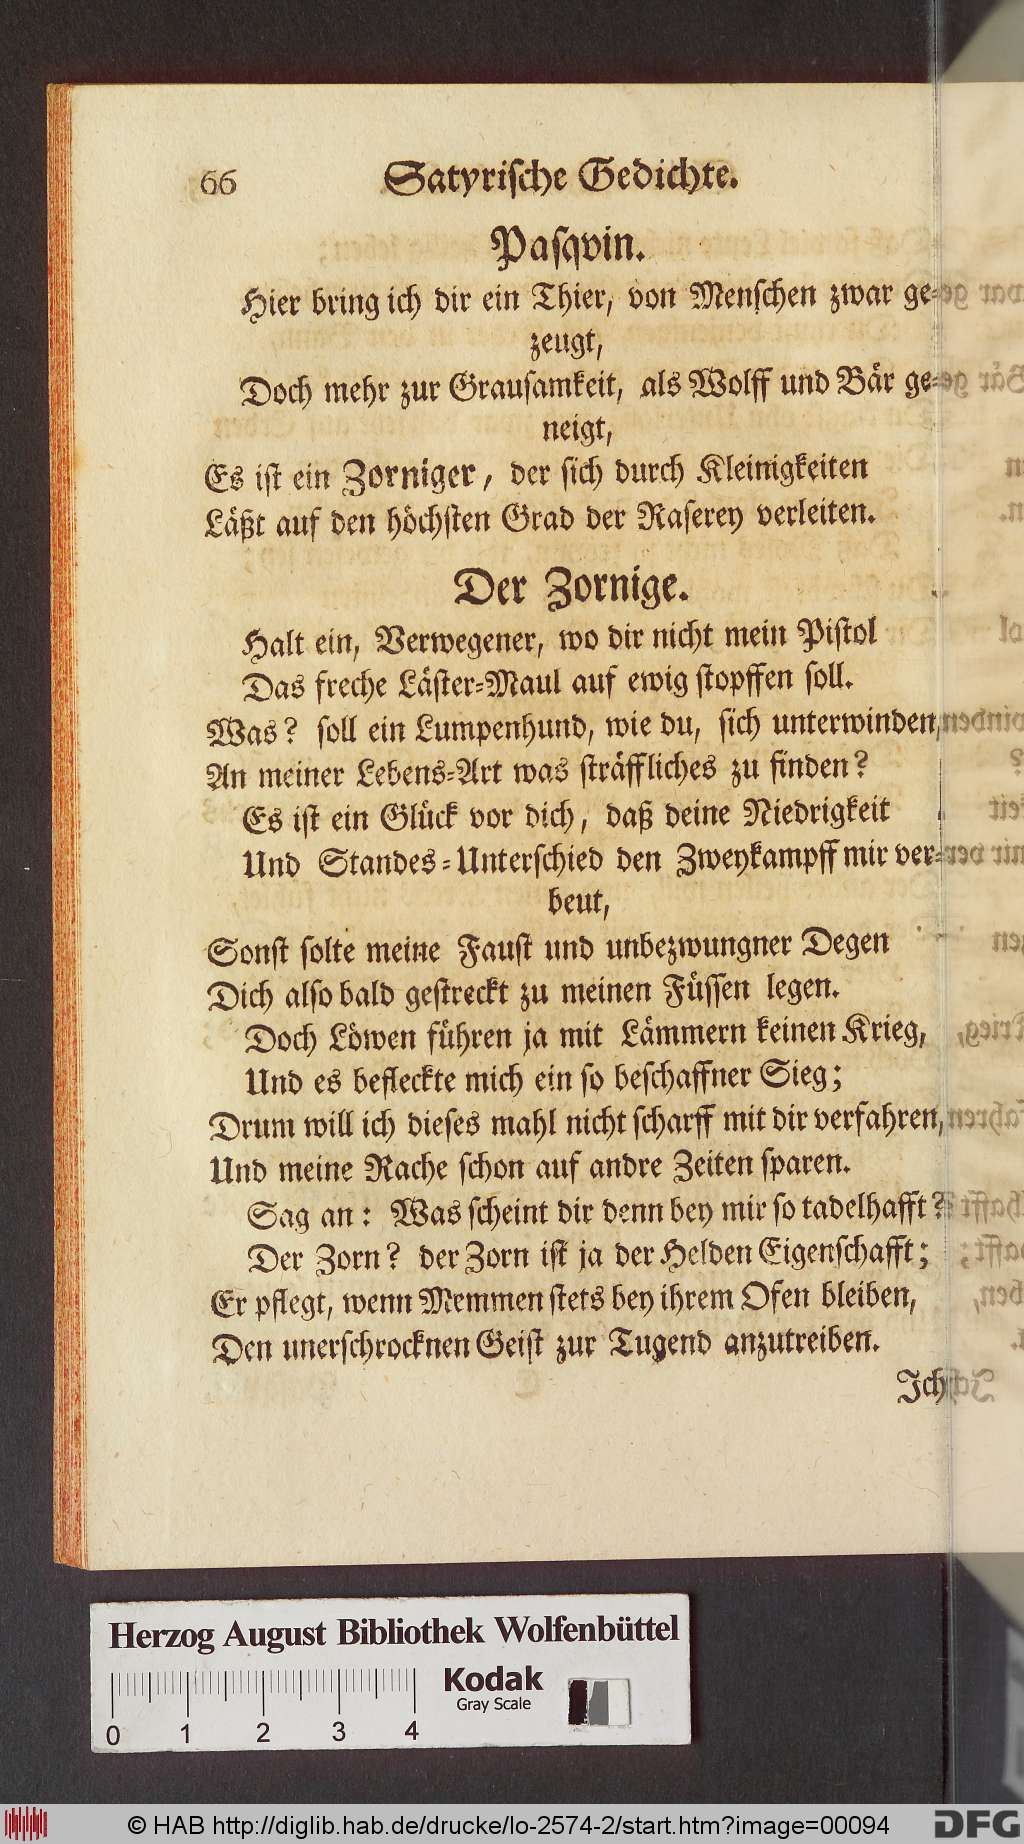 66 Satyrische Gedichte.
Pasqvin.
Hier bring ich dir ein Thier, von Menschen zwar ge-
zeugt,
Doch mehr zur Grausamkeit, als Wolff und Bär ge-
neigt,
Es ist ein Zorniger, der sich durch Kleinigkeiten
Läßt auf den höchsten Grad der Raserey verleiten.
Der Zornige.
Halt ein, Verwegener, wo dir nicht mein Pistol
Das freche Läster-Maul auf ewig stopffen soll.
Was? soll ein Lumpenhund, wie du, sich unterwinden,
An meiner Lebens-Art was sträffliches zu finden?
Es ist ein Glück vor dich, daß deine Niedrigkeit
Und Standes-Unterschied den Zweykampff mir ver-
beut,
Sonst solte meine Faust und unbezwungner Degen
Dich also bald gestreckt zu meinen Füssen legen.
Doch Löwen führen ja mit Lämmern keinen Krieg,
Und es befleckte mich ein so beschaffner Sieg;
Drum will ich dieses mahl nicht scharff mit dir verfahren,
Und meine Rache schon auf andre Zeiten sparen.
Sag an: Was scheint dir denn bey mir so tadelhafft?
Der Zorn? der Zorn ist ja der Helden Eigenschafft;
Er pflegt, wenn Memmen stets bey ihrem Ofen bleiben,
Den unerschrocknen Geist zur Tugend anzutreiben.
Ich
Herzog August Bibliothek Wolfenbüttel
Kodak
Gray Scale
0 1 2 3 4
© HAB http://diglib.hab.de/drucke/lo-2574-2/start.htm?image=00094
DFG